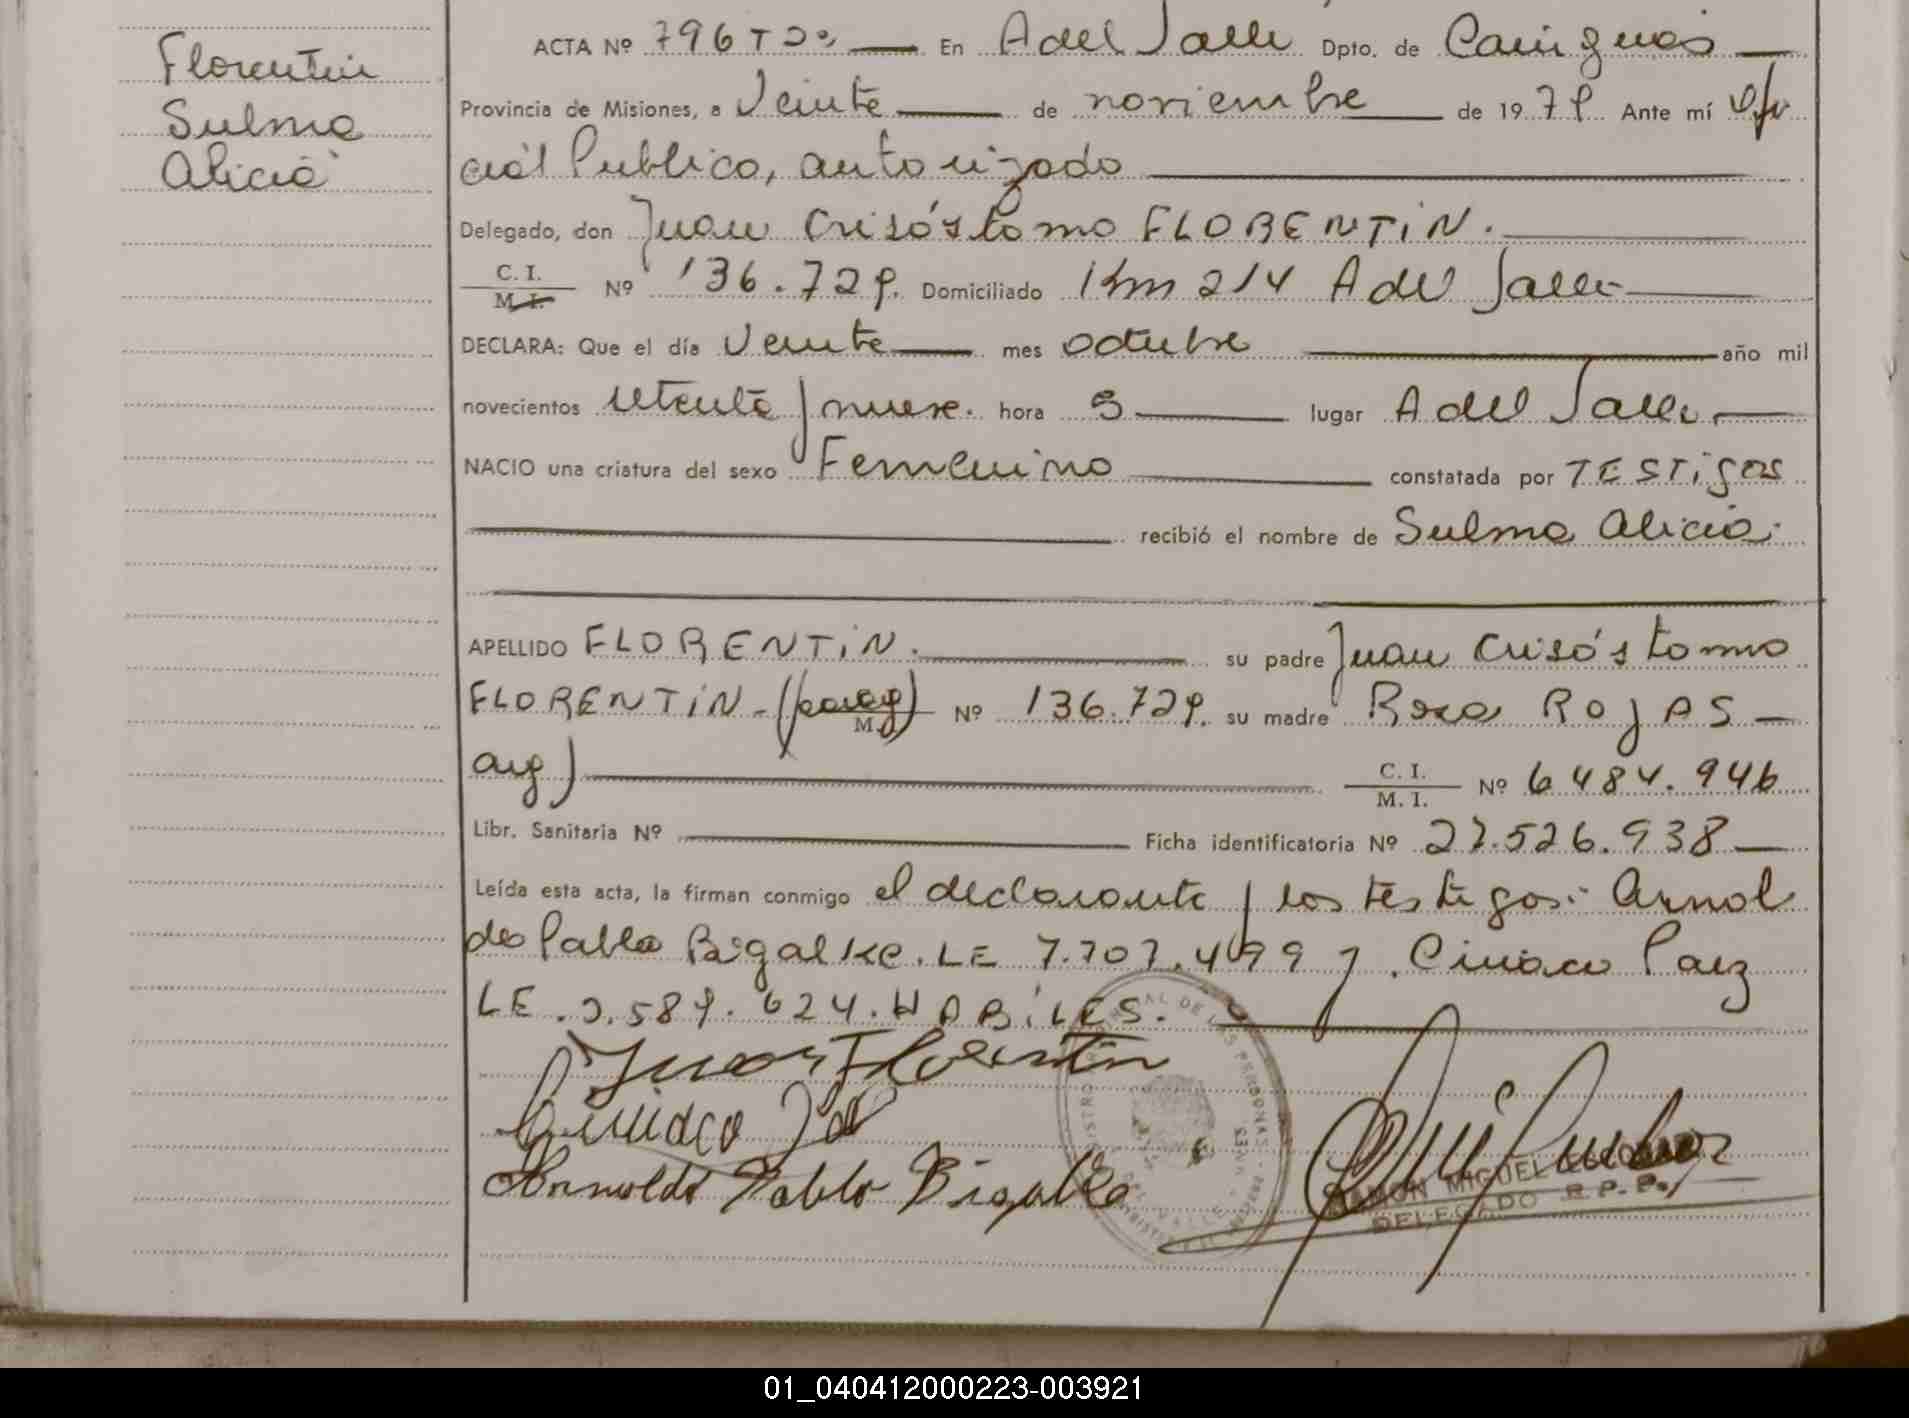 Florentin
Sulma
Alicia
ACTA Nº 796 Tº 2º En A del Valle Dpto. de Cainguás
Provincia de Misiones, a Veinte de noviembre de 1979 Ante mí Ofi
cial Publico, autorizado
Delegado, don Juan Crisóstomo FLORENTiN.
C. I.
M. I. Nº 136.729. Domiciliado Km 214 A del Valle
DECLARA: Que el día Veinte mes octubre año mil
novecientos setenta y nueve. hora 3 lugar A del Valle.
NACIO una criatura del sexo Femenino constatada por TESTigos
recibió el nombre de Sulma Alicia.
APELLIDO FLORENTiN. su padre Juan Crisóstomo
FLORENTiN - (parag) M. Nº 136.729. su madre Rosa ROJAS
arg) C. I.
M. I. Nº 6484.946
Libr. Sanitaria Nº Ficha identificatoria Nº 27.526.938
Leída esta acta, la firman conmigo el declarante y los testigos: Arnol
do Pablo Bigalke. LE 7.707.499 y Ciriaco Paez
LE .589.624. HABiLES.
Juan Florentin
Ciriaco
Arnoldo Pablo Bigalke
RAMON MIGUEL ESCOBAR
DELEGADO R. P. P.
DE LAS PERSONAS
VALLE
01_040412000223-003921